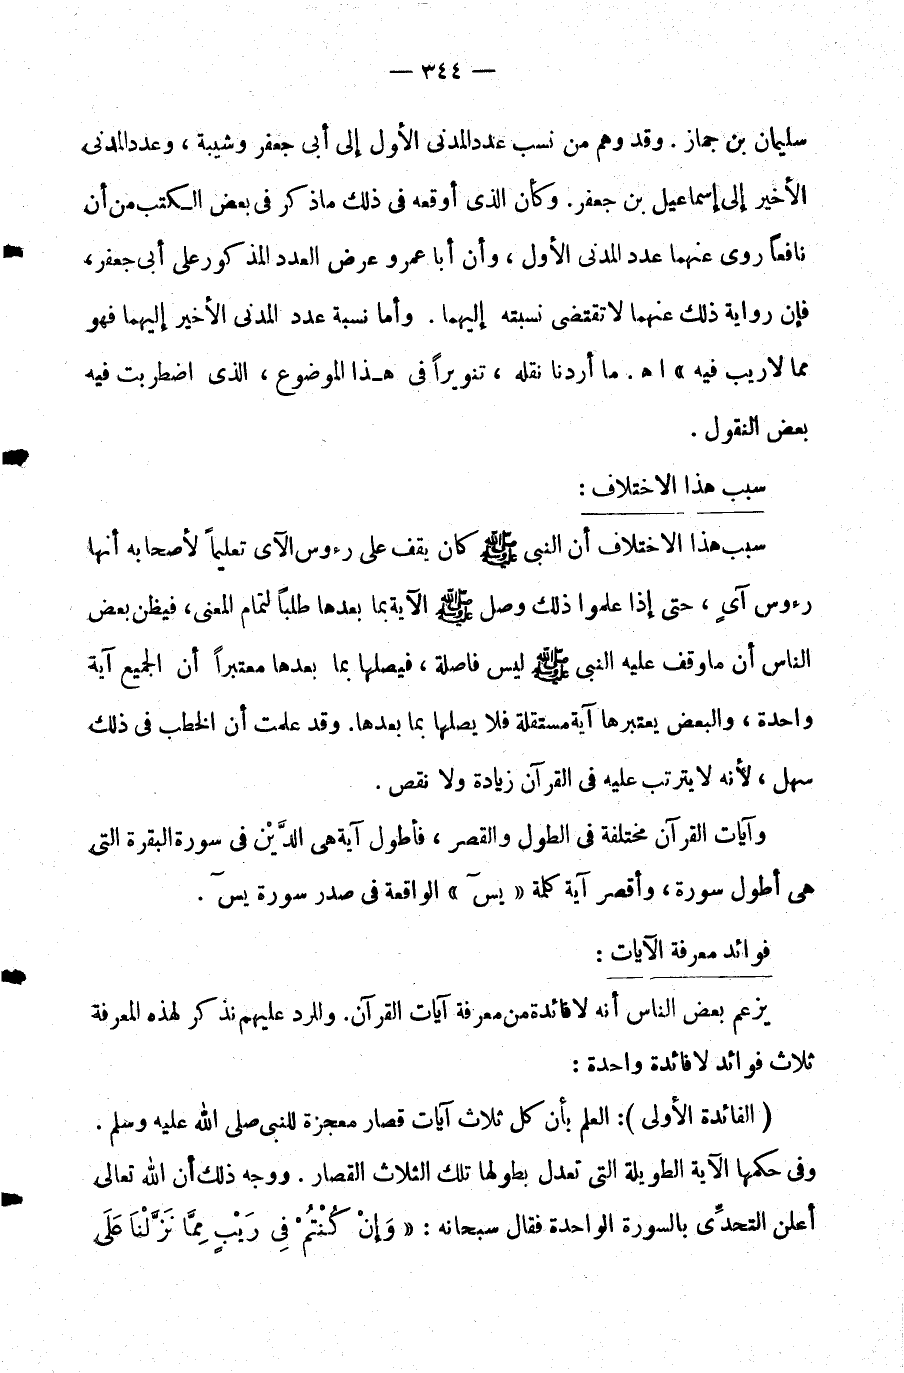 — ٣٤٤ —
سليمان بن جماز . وقد وهم من نسب عدد المدنى الأول إلى أبى جعفر وشيبة ، وعدد المدنى
الأخير إلى إسماعيل بن جعفر . وكأن الذى أوقعه فى ذلك ماذكر فى بعض الكتب من أن
نافعاً روى عنهما عدد المدنى الأول ، وأن أبا عمرو عرض العدد المذكور على أبى جعفر ،
فإن رواية ذلك عنهما لاتقتضى نسبته إليهما . وأما نسبة عدد المدنى الأخير إليهما فهو
مما لاريب فيه » ا ه . ما أردنا نقله ، تنويراً فى هذا الموضوع ، الذى اضطربت فيه
بعض النقول .
سبب هذا الاختلاف :
سبب هذا الاختلاف أن النبى ﷺ كان يقف على رءوس الآى تعليماً لأصحابه أنها
رءوس آىٍ ، حتى إذا علموا ذلك وصل ﷺ الآية بما بعدها طلباً لتمام المعنى ، فيظن بعض
الناس أن ماوقف عليه النبى ﷺ ليس فاصلة ، فيصلها بما بعدها معتبراً أن الجميع آية
واحدة ، والبعض يعتبرها آية مستقلة فلا يصلها بما بعدها . وقد علمت أن الخطب فى ذلك
سهل ، لأنه لايترتب عليه فى القرآن زيادة ولا نقص .
وآيات القرآن مختلفة فى الطول والقصر ، فأطول آية هى الدَّيْن فى سورة البقرة التى
هى أطول سورة ، وأقصر آية كلمة « يسٓ » الواقعة فى صدر سورة يسٓ .
فوائد معرفة الآيات :
يزعم بعض الناس أنه لافائدة من معرفة آيات القرآن . وللرد عليهم نذكر لهذه المعرفة
ثلاث فوائد لافائدة واحدة :
( الفائدة الأولى ) : العلم بأن كل ثلاث آيات قصار معجزة للنبى صلى الله عليه وسلم .
وفى حكمها الآية الطويلة التى تعدل بطولها تلك الثلاث القصار . ووجه ذلك أن الله تعالى
أعلن التحدِّى بالسورة الواحدة فقال سبحانه : « وَإِنْ كُنْتُمْ فِى رَيْبٍ مِمَّا نَزَّلْنَا عَلَى